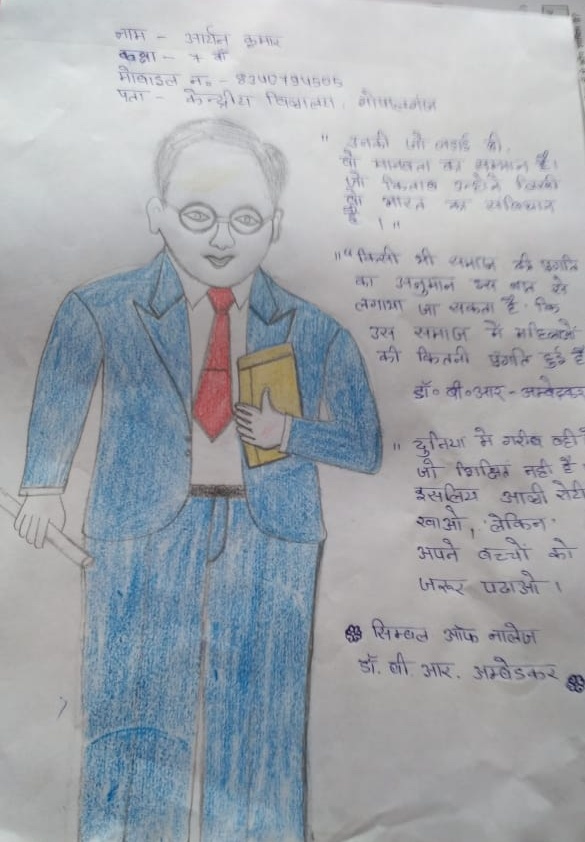 नाम - आर्यन कुमार
कक्षा - 7 वीं
मोबाइल नं० -
पता - केन्द्रीय विद्यालय, गोपालगंज
" उनकी जो लड़ाई थी,
वो मानवता का सम्मान है।
जो किताब उन्होंने लिखी
वो भारत का संविधान
है
। "
"" किसी भी समाज की प्रगति
का अनुमान इस बात से
लगाया जा सकता है कि
उस समाज में महिलाओं
की कितनी प्रगति हुई है
डॉ० बी०आर-अम्बेडकर
" दुनिया में गरीब वही है
जो शिक्षित नहीं है
इसलिय आधी रोटी
खाओ, लेकिन
अपने बच्चों को
जरूर पढाओ ।
सिम्बल ऑफ नॉलेज
डॉ. बी. आर. अम्बेडकर